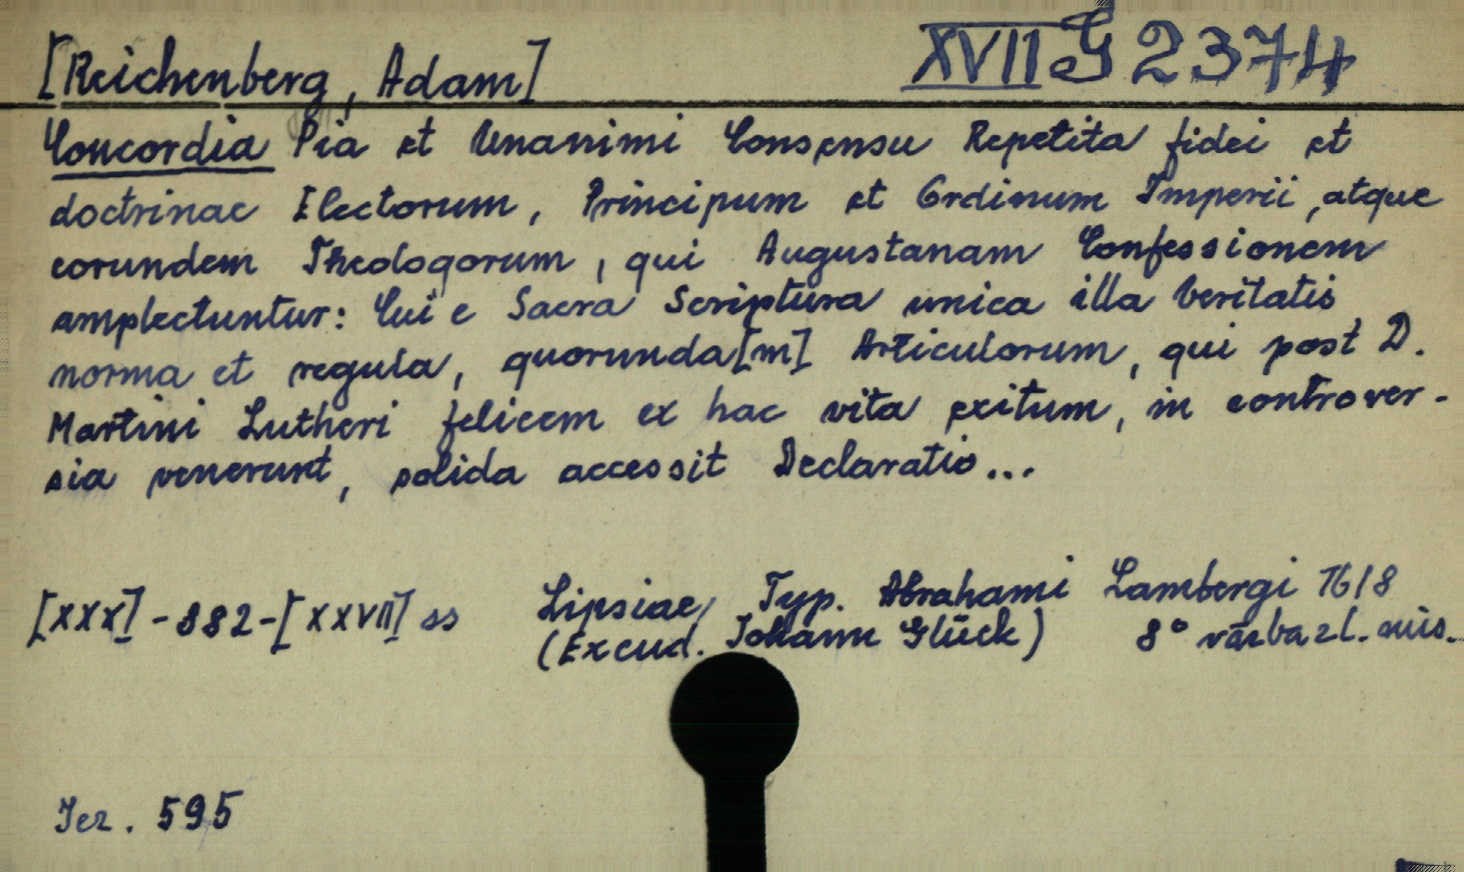 [Reichenberg, Adam] XVII G 2374
Concordia Pia et Unanimi Consensu Repetita fidei et
doctrinae Electorum, Principum et Ordinum Imperii, atque
eorundem Theologorum, qui Augustanam Confessionem
amplectuntur: Cui e Sacra Scriptura unica illa Veritatis
norma et regula, quorunda[m] Articulorum, qui post D.
Martini Lutheri felicem ex hac vita exitum, in controver-
sia venerunt, solida accessit Declaratio...
[XXX] - 882 - [XXVII] ss Lipsiae, Typ. Abrahami Lambergi 1618
(Excud. Johann Glück) 8°
Jez. 595